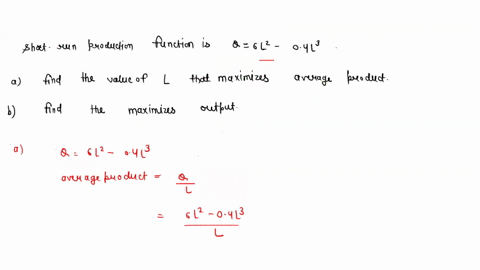 Short-run production function is Q = 6L² - 0.4L³.
a) find the value of L that maximizes average product.
b) find the maximizes output.
a) Q = 6L² - 0.4L³
average product = Q/L
= 6L² - 0.4L³/L